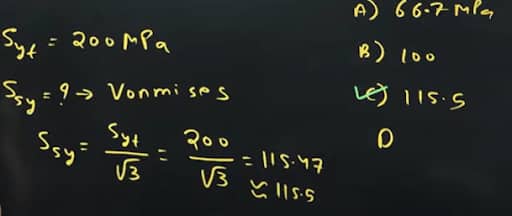 S_yt = 200 MPa
S_sy = ? → Vonmises
S_sy = S_yt / √3 = 200 / √3 = 115.47
≈ 115.5
A) 66.7 MPa
B) 100
C) 115.5
D